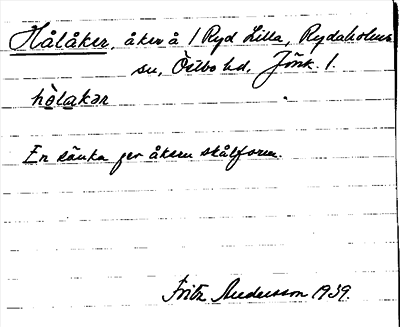 Hålåker, åker å 1 Ryd Lilla, Rydaholms
sn, Östbo hd, Jönk. l.
hòlakər
En sänka ger åkern skålform.
Fritz Andersson 1939.